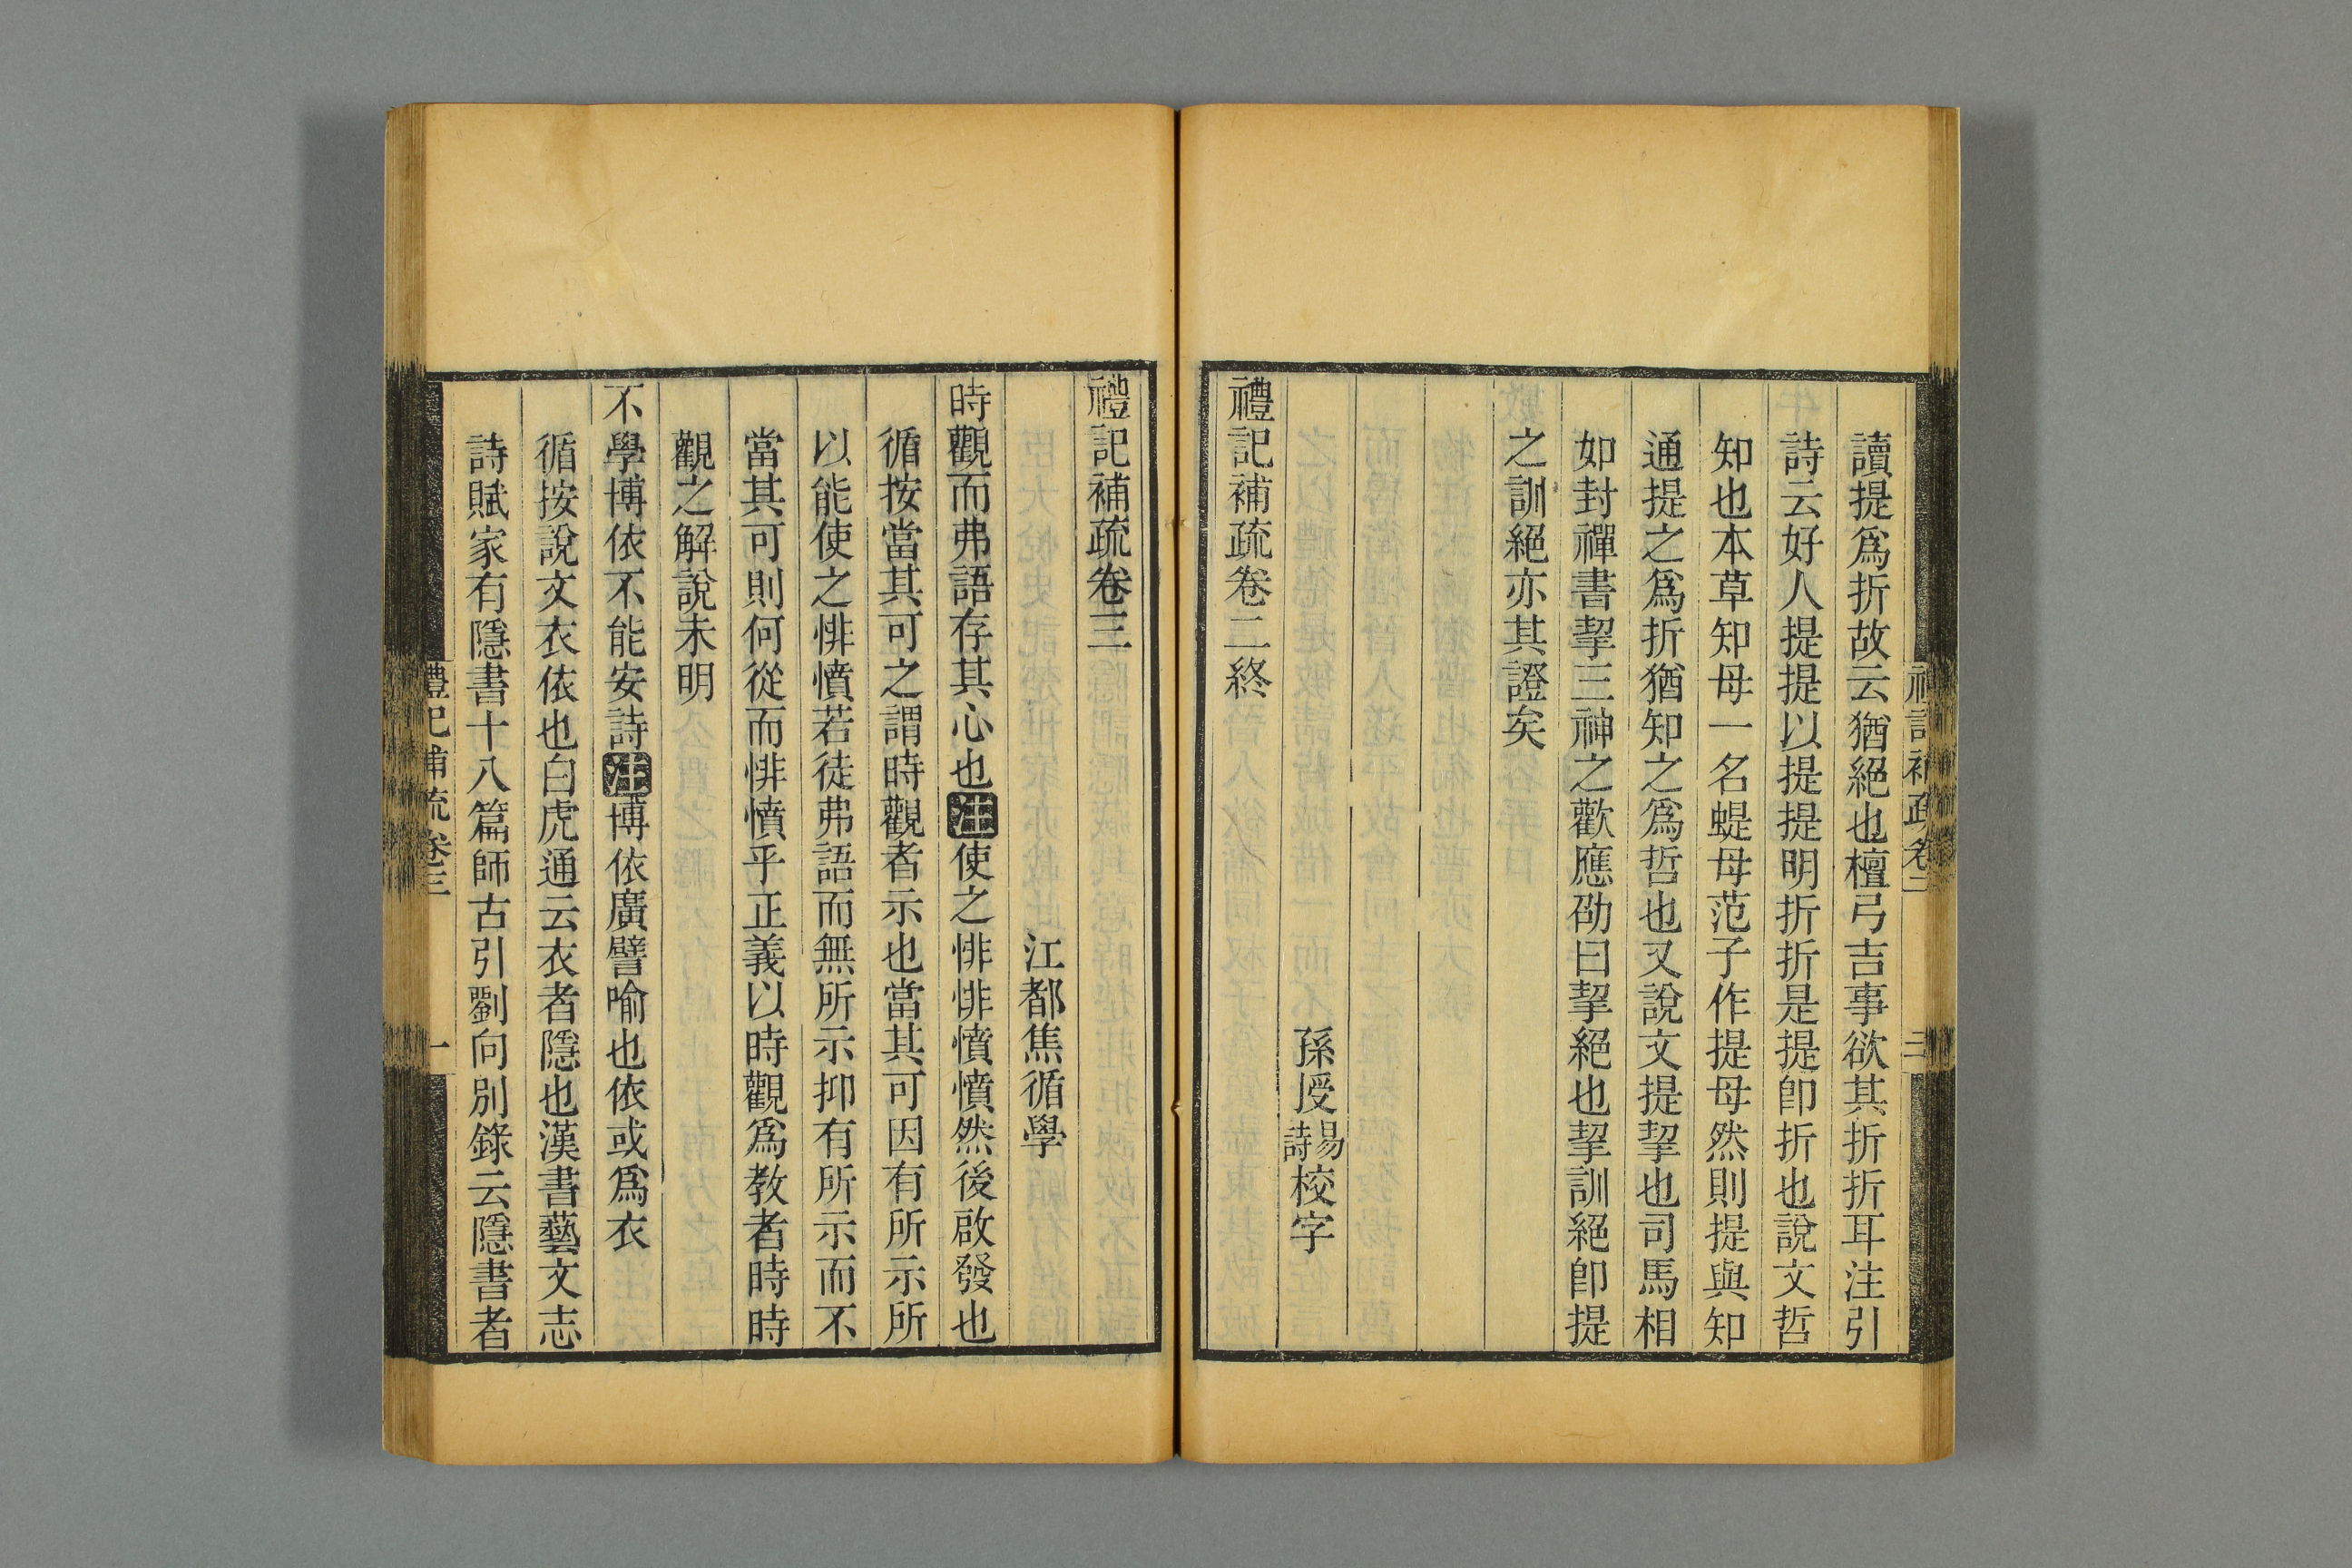 讀提爲折故云猶絕也檀弓吉事欲其折折耳注引
詩云好人提提以提提明折折是提卽折也說文哲
知也本草知母一名蝭母范子作提母然則提與知
通提之爲折猶知之爲哲也又說文提挈也司馬相
如封禪書挈三神之歡應劭曰挈絕也挈訓絕卽提
之訓絕亦其證矣
孫授易詩校字
禮記補疏卷二終
禮記補疏卷三
江都焦循學
時觀而弗語存其心也注使之悱悱憤憤然後啟發也
循按當其可之謂時觀者示也當其可因有所示所
以能使之悱憤若徒弗語而無所示抑有所示而不
當其可則何從而悱憤乎正義以時觀爲教者時時
觀之解說未明
不學博依不能安詩注博依廣譬喻也依或爲衣
循按說文衣依也白虎通云衣者隱也漢書藝文志
詩賦家有隱書十八篇師古引劉向別錄云隱書者
禮記補疏卷三
一